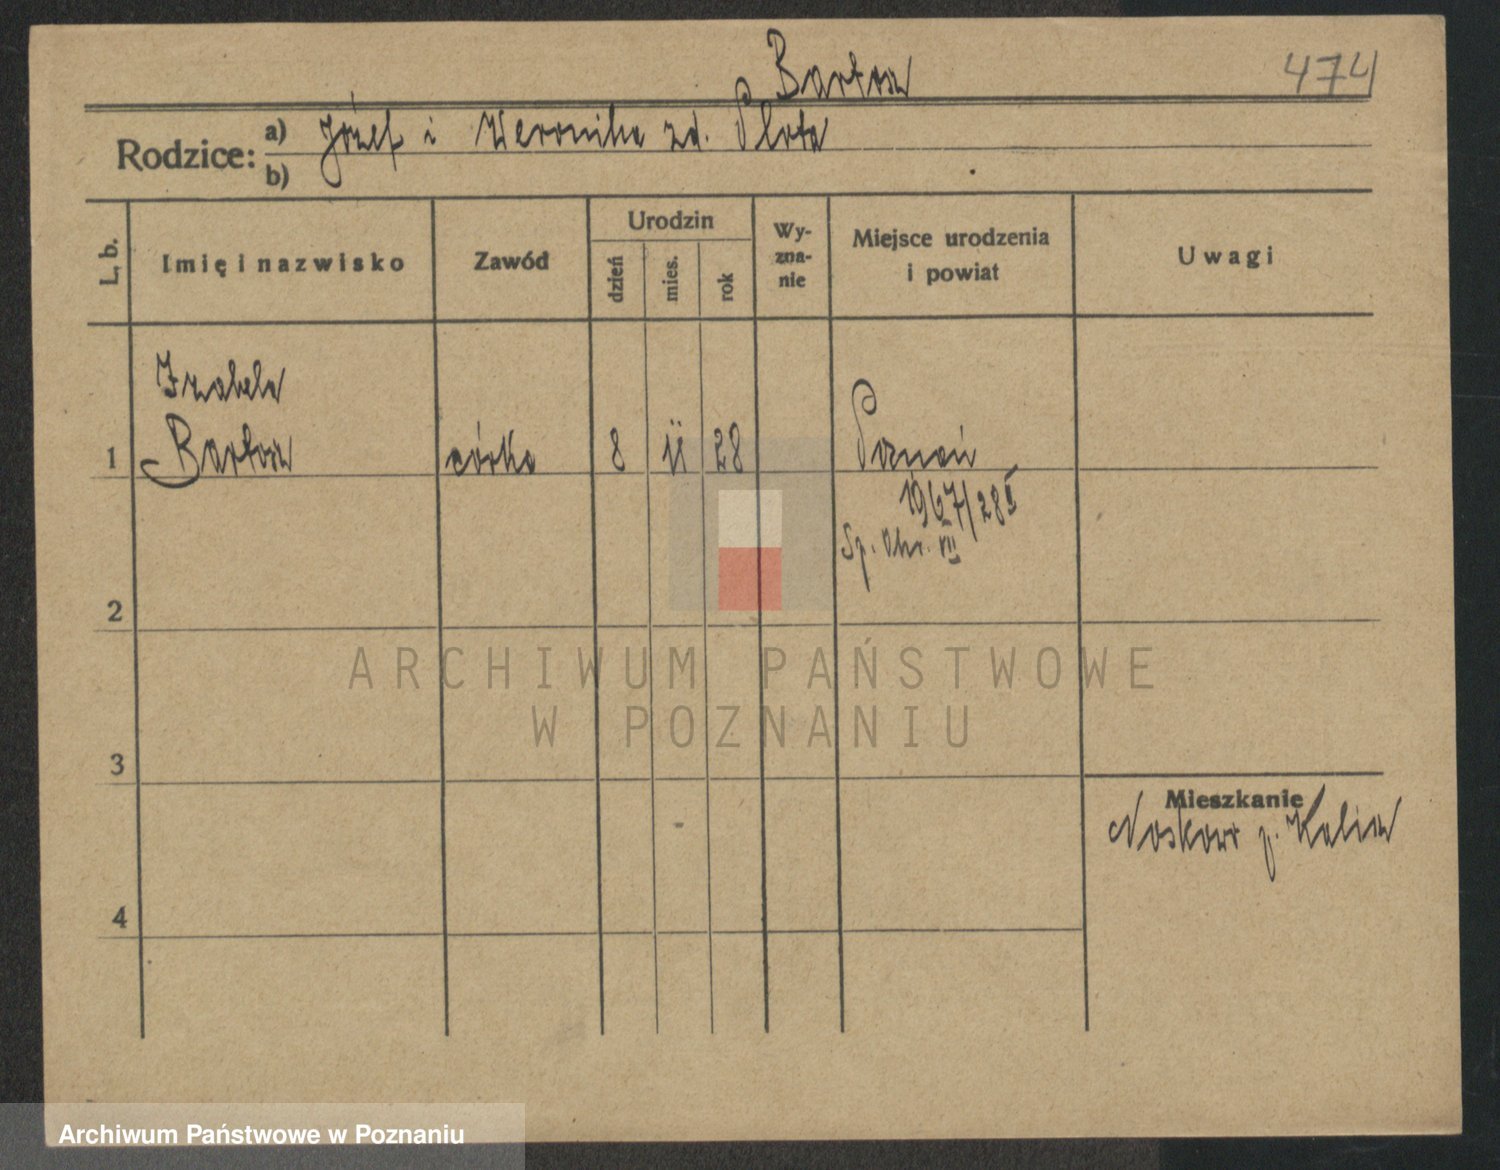 Bartosz
474
Rodzice: a) Józef i Weronika zd. Plota
b)
L. b.
Imię i nazwisko
Zawód
Urodzin
dzień
mies.
rok
Wy-
zna-
nie
Miejsce urodzenia
i powiat
Uwagi
Izabela
1 Bartosz córka 8 11 28 Poznań
1967/28 I
Sp. Okr. VII
2
3
Mieszkanie
p. Kalisz
4
ARCHIWUM PAŃSTWOWE
W POZNANIU
Archiwum Państwowe w Poznaniu